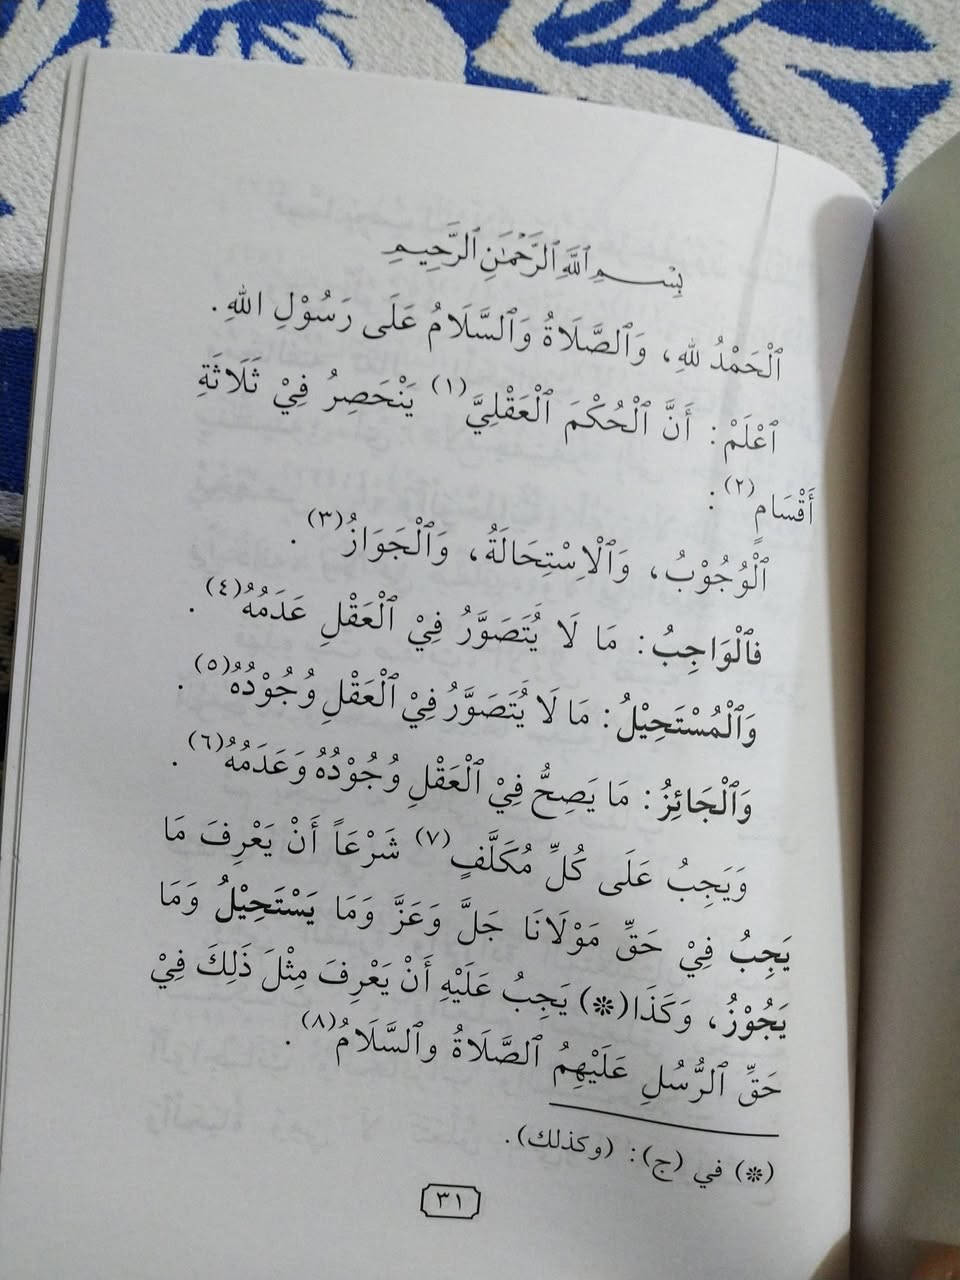 بِسْمِ ٱللَّهِ ٱلرَّحْمَٰنِ ٱلرَّحِيمِ
ٱلْحَمْدُ لِلهِ، وَٱلصَّلَاةُ وَٱلسَّلَامُ عَلَى رَسُوْلِ اللهِ.
ٱعْلَمْ: أَنَّ ٱلْحُكْمَ ٱلْعَقْلِيَّ(١) يَنْحَصِرُ فِيْ ثَلَاثَةِ
أَقْسَامٍ(٢):
ٱلْوُجُوْبُ، وَٱلْاِسْتِحَالَةُ، وَٱلْجَوَازُ(٣).
فَٱلْوَاجِبُ: مَا لَا يُتَصَوَّرُ فِيْ ٱلْعَقْلِ عَدَمُهُ(٤).
وَٱلْمُسْتَحِيْلُ: مَا لَا يُتَصَوَّرُ فِيْ ٱلْعَقْلِ وُجُوْدُهُ(٥).
وَٱلْجَائِزُ: مَا يَصِحُّ فِيْ ٱلْعَقْلِ وُجُوْدُهُ وَعَدَمُهُ(٦).
وَيَجِبُ عَلَى كُلِّ مُكَلَّفٍ(٧) شَرْعَاً أَنْ يَعْرِفَ مَا
يَجِبُ فِيْ حَقِّ مَوْلَانَا جَلَّ وَعَزَّ وَمَا يَسْتَحِيْلُ وَمَا
يَجُوْزُ، وَكَذَا(*) يَجِبُ عَلَيْهِ أَنْ يَعْرِفَ مِثْلَ ذَلِكَ فِيْ
حَقِّ ٱلرُّسُلِ عَلَيْهِمُ ٱلصَّلَاةُ وٱلسَّلَامُ(٨).
(*) في (ج): (وكذلك).
٣١